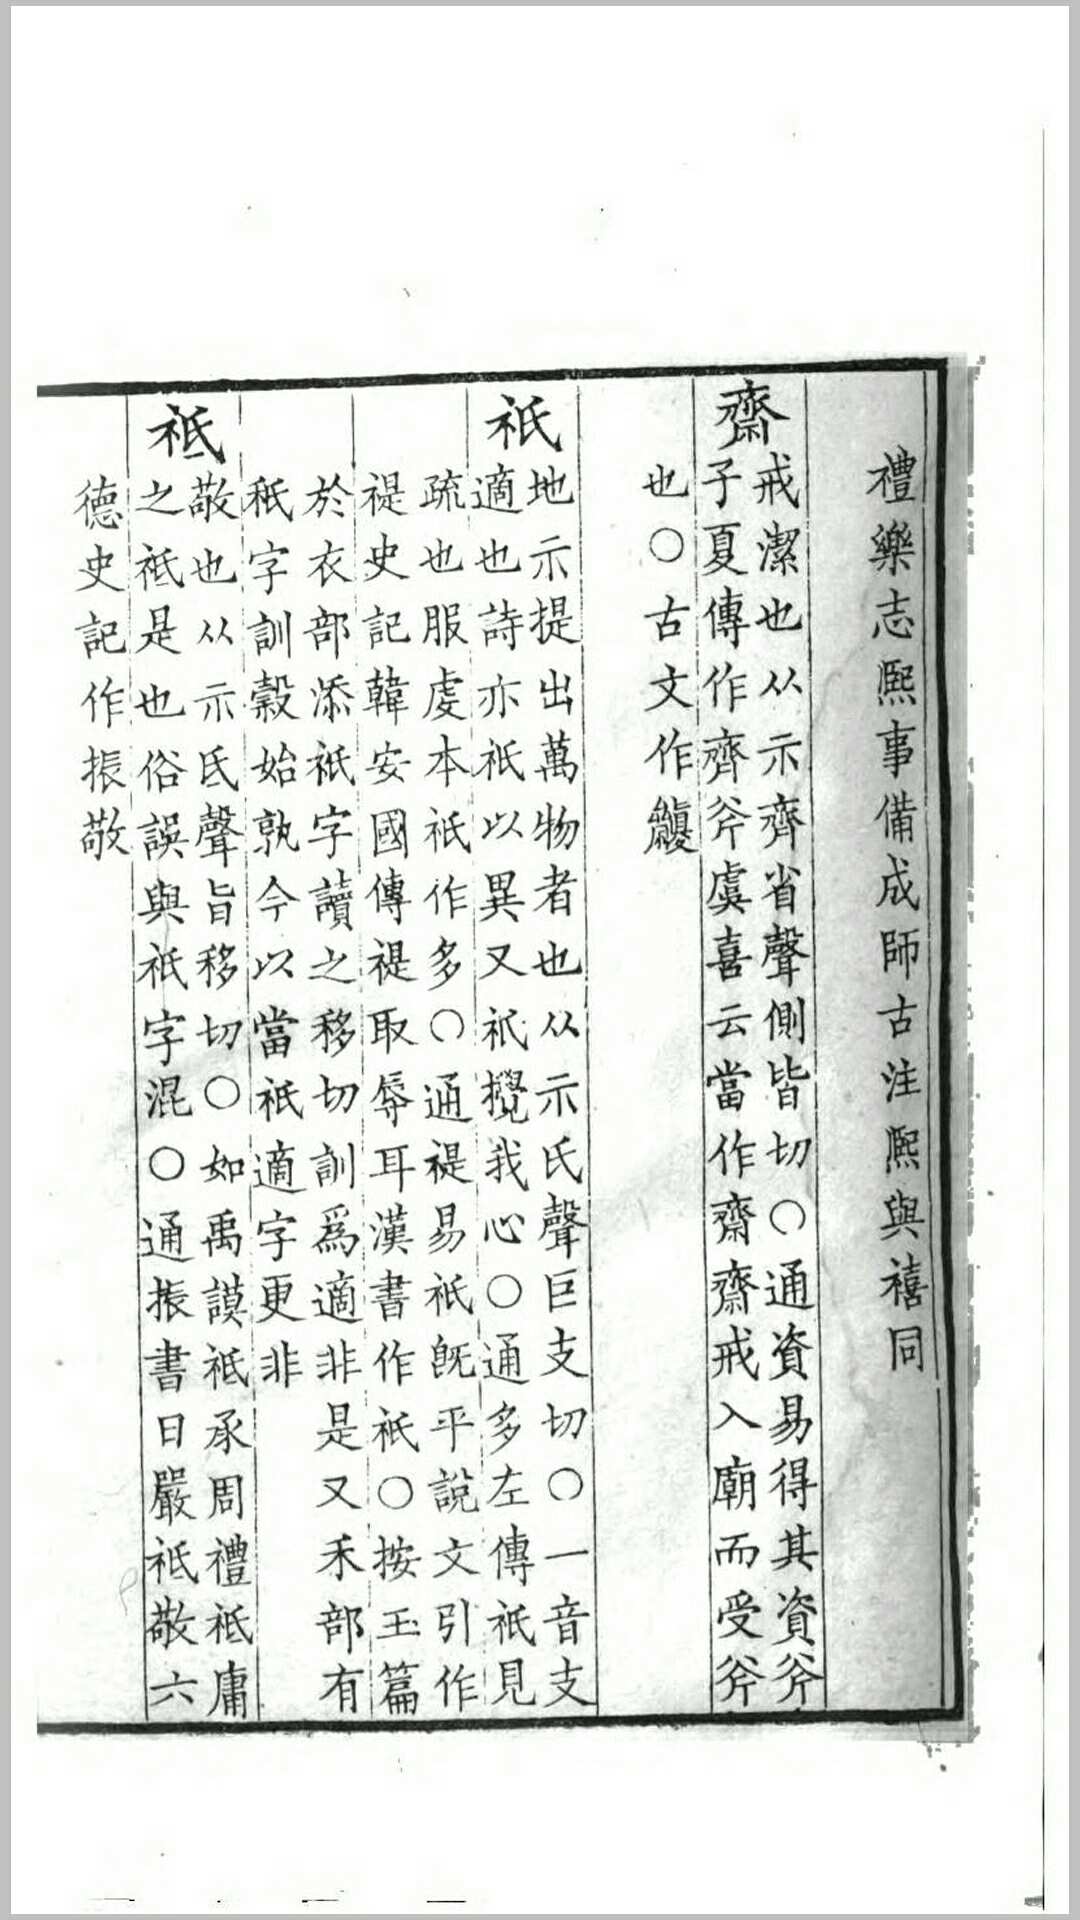 禮樂志熙事備成師古注熙與禧同
齋
戒潔也从示齊省聲側皆切○通資易得其資斧
子夏傳作齊斧虞喜云當作齋齋戒入廟而受斧
也○古文作
祇
地示提出萬物者也从示氏聲巨支切○一音支
適也詩亦祇以異又祇攪我心○通多左傳祇見
疏也服虔本祇作多○通禔易祇旣平說文引作
禔史記韓安國傳禔取辱耳漢書作祇○按玉篇
於衣部添祇字讀之移切訓爲適非是又禾部有
秖字訓穀始孰今以當祇適字更非
祗
敬也从示氐聲旨移切○如禹謨祗承周禮祗庸
之祗是也俗誤與祇字混○通振書日嚴祗敬六
德史記作振敬